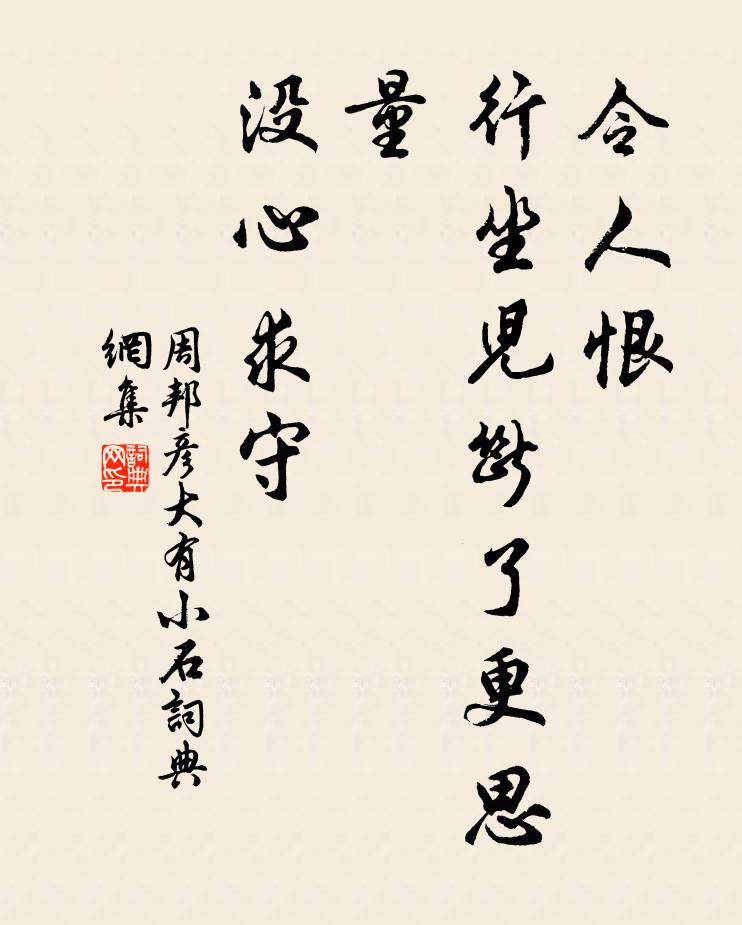 令人恨
行坐兒斷了更思
量
没心求守
周邦彥大有小石詞典
網集
詞典
网印